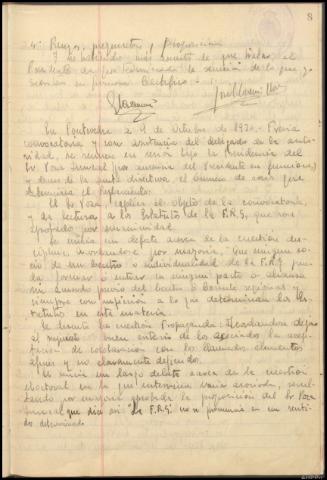 8
4º Ruegos, preguntas, proposiciones
Y no habiendo más asuntos de que tratar el
Presidente da por terminada la sesión de la que yo
Secretario en funciones Certifico.
En Pontevedra a 9 de Octubre de 1930. Previa
convocatoria y con asistencia del delegado de la auto-
ridad, se reunen en sesión bajo la Presidencia del
Sr. Poza Juncal por ausencia del Presidente en funciones,
y demás de la directiva el número de socios que
determina el reglamento.
El Sr. Poza explica el objeto de la convocatoria,
y da lectura a los Estatutos de la F.R.G. que son
aprobados por unanimidad.
Se inicia un debate acerca de la cuestión dis-
ciplina, acordándose por mayoría: Que ningún so-
cio de un Centro o individualidad de la F.R.G. pue-
da formar o entrar a ninguna parte o alianza
sin acuerdo previo del Centro o Comité regional, y
siempre con sujeción a lo que determinan los Es-
tatutos en esta materia.
Se discute la cuestión Propaganda: Acordándose dejar
al
buen criterio de los asociados la acep-
tación de colaboración con los llamados elementos
afines y no claramente definidos.
Se inicia un largo debate acerca de la cuestión
electoral en la que intervienen varios asociados, resul-
tando por mayoría aprobada la proposición del Sr. Poza
Juncal que dice así: "La F.R.G. no se pronuncia en un senti-
do determinado.